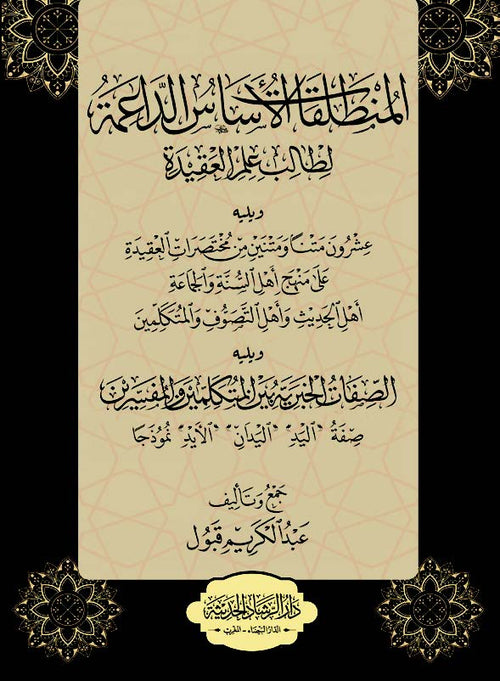 المُنْطَلَقَاتُ الأَسَاسُ الدَّاعِمَةُ
لِطَالِبِ عِلْمِ العَقِيدَةِ
ويليه
عِشْرُونَ مَتْنًا وَمَتْنَيْنِ مِنْ مُخْتَصَرَاتِ العَقِيدَةِ
عَلَى مَنْهَجِ أَهْلِ السُّنَّةِ وَالجَمَاعَةِ
أَهْلِ الحَدِيثِ وَأَهْلِ التَّصَوُّفِ وَالمُتَكَلِّمِينَ
ويليه
الصِّفَاتُ الخَبَرِيَّةُ بَيْنَ المُتَكَلِّمِينَ وَالمُفَسِّرِينَ
صِفَةُ "اليَدِ" "اليَدَانِ" "الأَيْدِ" نَمُوذَجًا
جَمْعُ وَتَأْلِيف
عَبْدُ الكَرِيمِ قَبُول
دَارُ الرَّشَادِ الحَدِيثَةِ
الدَّارُ البَيْضَاء - المَغْرِب